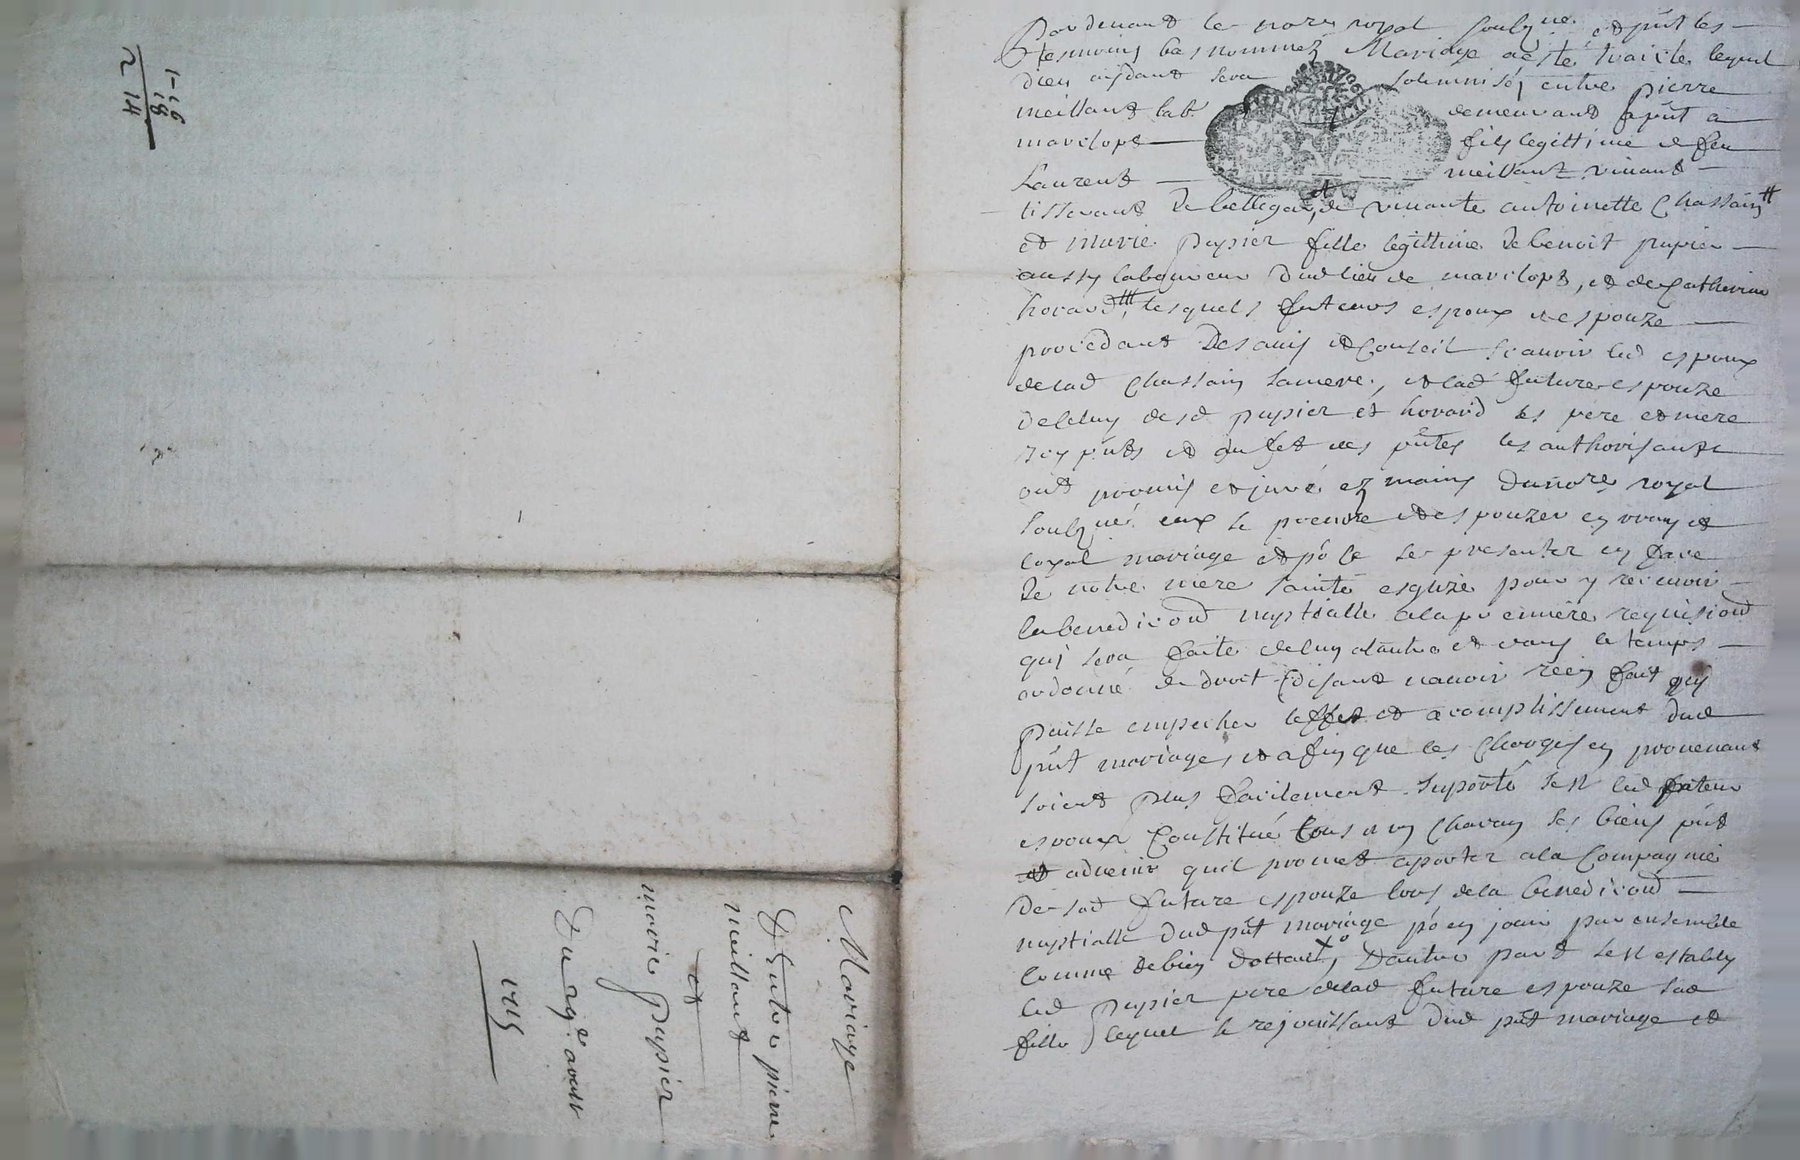 1-16
18
2 14
Mariage
D'Entre pierre
meillant
et
marie pupier
Du 29e aoust
1715
Pardevant le nore royal soubzne et pnt les
tesmoins bas nommez Mariage a esté traicté lequel
dieu aydant sera solemnisé entre pierre
meillant lab. demeurant a pnt a
marilopt fils legittime de feu
Laurent meillant vivant
tisserant de bellegarde, et de vivante antoinette Chassain
et marie pupier fille legittime de benoit pupier
aussy laboureur dud lieu de marilopt, et de Catherine
horard, lesquels futeurs espoux et espouze
procedant Des avis et Conseil scavoir led espoux
de lad Chassain sa mere, et lad future espouze
de celuy desd pupier et horard ses pere et mere
icy pnts et qui set des pntes les authorisant
ont promis et juré ez mains dud nore royal
soubzné eux se prendre et espouzer en vray et
loyal mariage et po ce se presenter en face
de notre mere sainte esglize pour y recevoir
la benediciond nuptialle a la premiere requisiond
qui sera faite de l'un a l'autre et dans le temps
ordonné de droit disant n'avoir rien fait qui
puisse empecher l'effet et acomplissement dud
pnt mariage, et afin que les Charges en provenant
soient plus facilement suporté s'est led futeur
espoux Constitué tous et un chacun ses biens pnt
et advenir qu'il promet aporter a la Compagnie
de sad future espouze lors de la benediciond
nuptialle dud pnt mariage po en jouir par ensemble
comme de bien dottaux, D'autre part s'est estably
led pupier pere de lad future espouze sad
fille lequel se rejouissant dud pnt mariage et